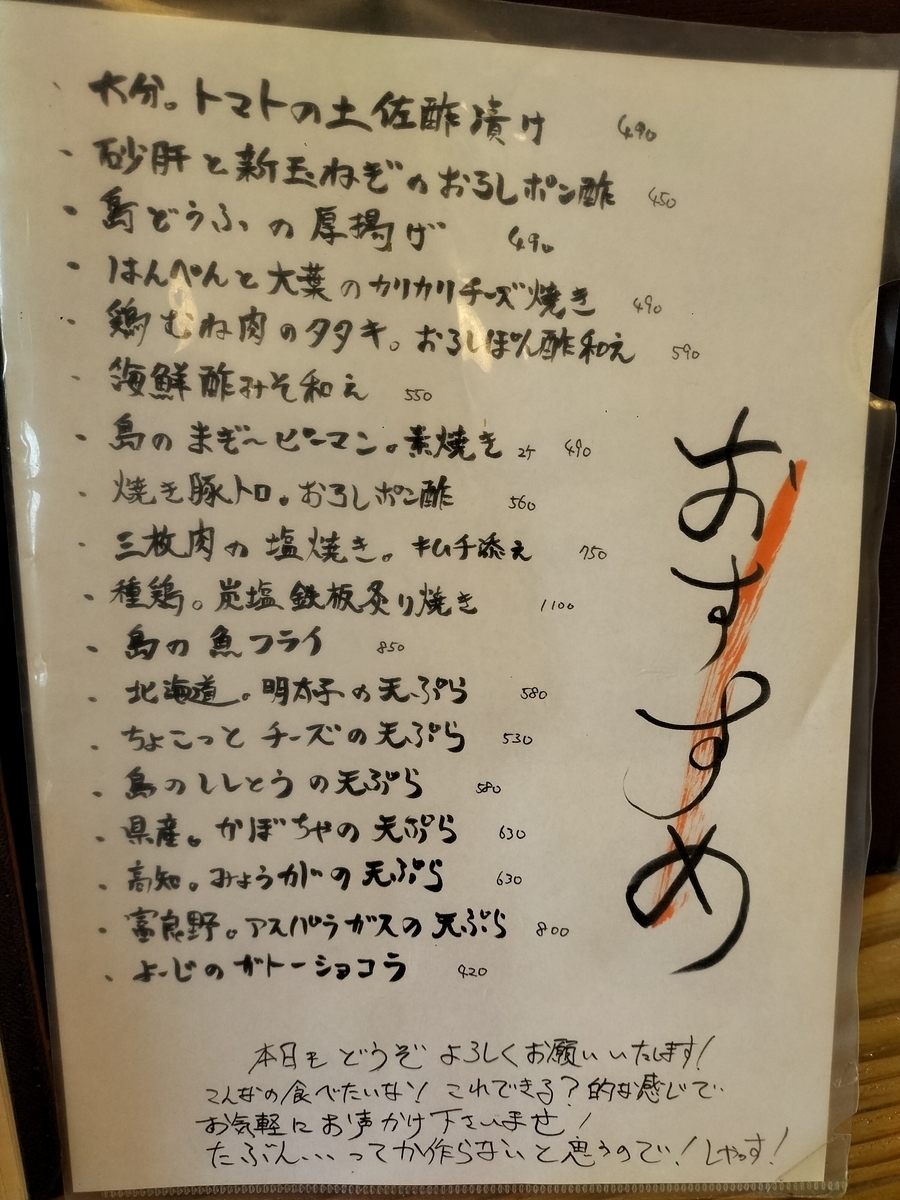 ・大分。トマトの土佐酢漬け 490
・砂肝と新玉ねぎのおろしポン酢 450
・島どうふの厚揚げ 490
・はんぺんと大葉のカリカリチーズ焼き 490
・鶏むね肉のタタキ。おろしぽん酢和え 590
・海鮮酢みそ和え 550
・島のまぎ〜ピーマン。素焼き 2ケ 490
・焼き豚トロ。おろしポン酢 560
・三枚肉の塩焼き。キムチ添え 750
・種鶏。炭塩鉄板炙り焼き 1100
・島の魚フライ 850
・北海道。明太子の天ぷら 580
・ちょこっとチーズの天ぷら 530
・島のししとうの天ぷら 580
・県産。かぼちゃの天ぷら 630
・高知。みょうがの天ぷら 630
・富良野。アスパラガスの天ぷら 800
・よーじのガトーショコラ 420
おすすめ
本日もどうぞよろしくお願いいたします!
こんなの食べたいな!これできる?的な感じで
お気軽にお声かけ下さいませ!
たぶん...ってか作らないと思うので!しゃっす!